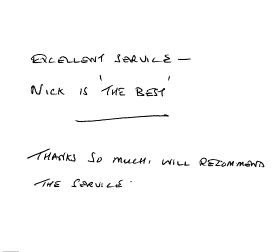 EXCELLENT SERVICE –
NICK IS 'THE BEST'
THANKS SO MUCH, WILL RECOMMEND
THE SERVICE.